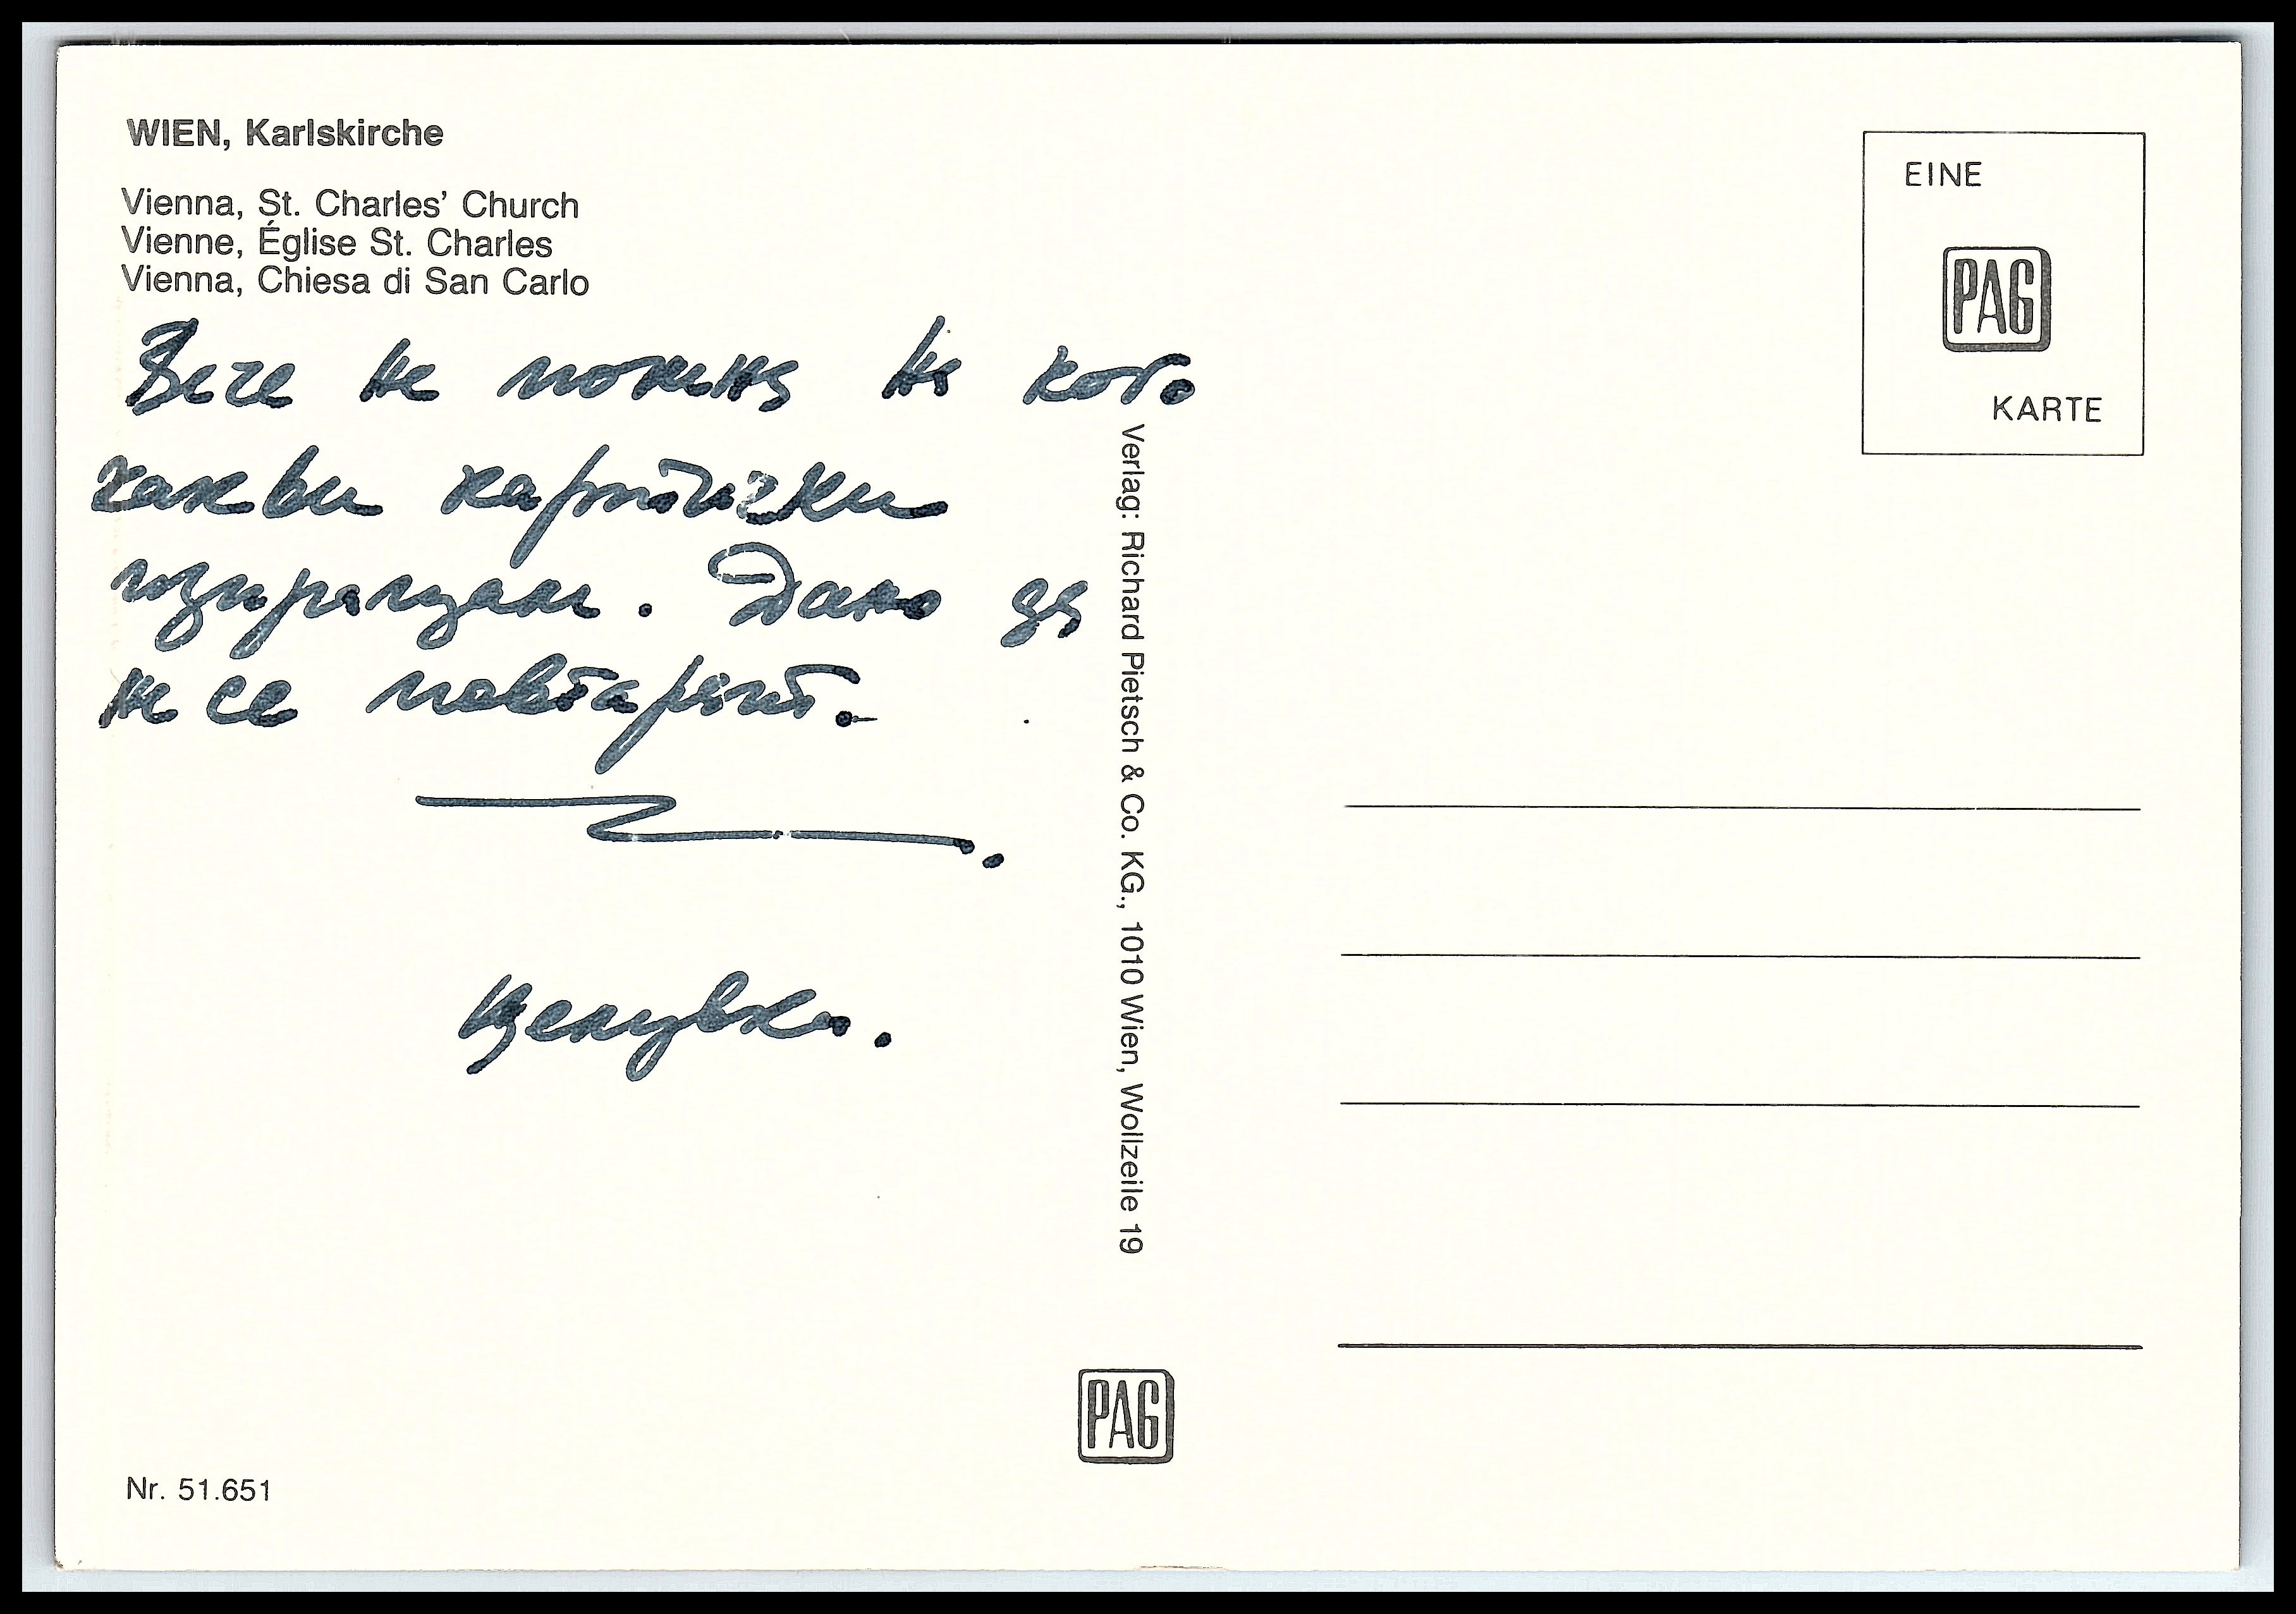 WIEN, Karlskirche
Vienna, St. Charles' Church
Vienne, Église St. Charles
Vienna, Chiesa di San Carlo
Вече не помня на кого
какви картички
изпращам. Дано да
не се повтарят.
Целувки.
EINE
PAG
KARTE
Verlag: Richard Pietsch & Co. KG., 1010 Wien, Wollzeile 19
PAG
Nr. 51.651